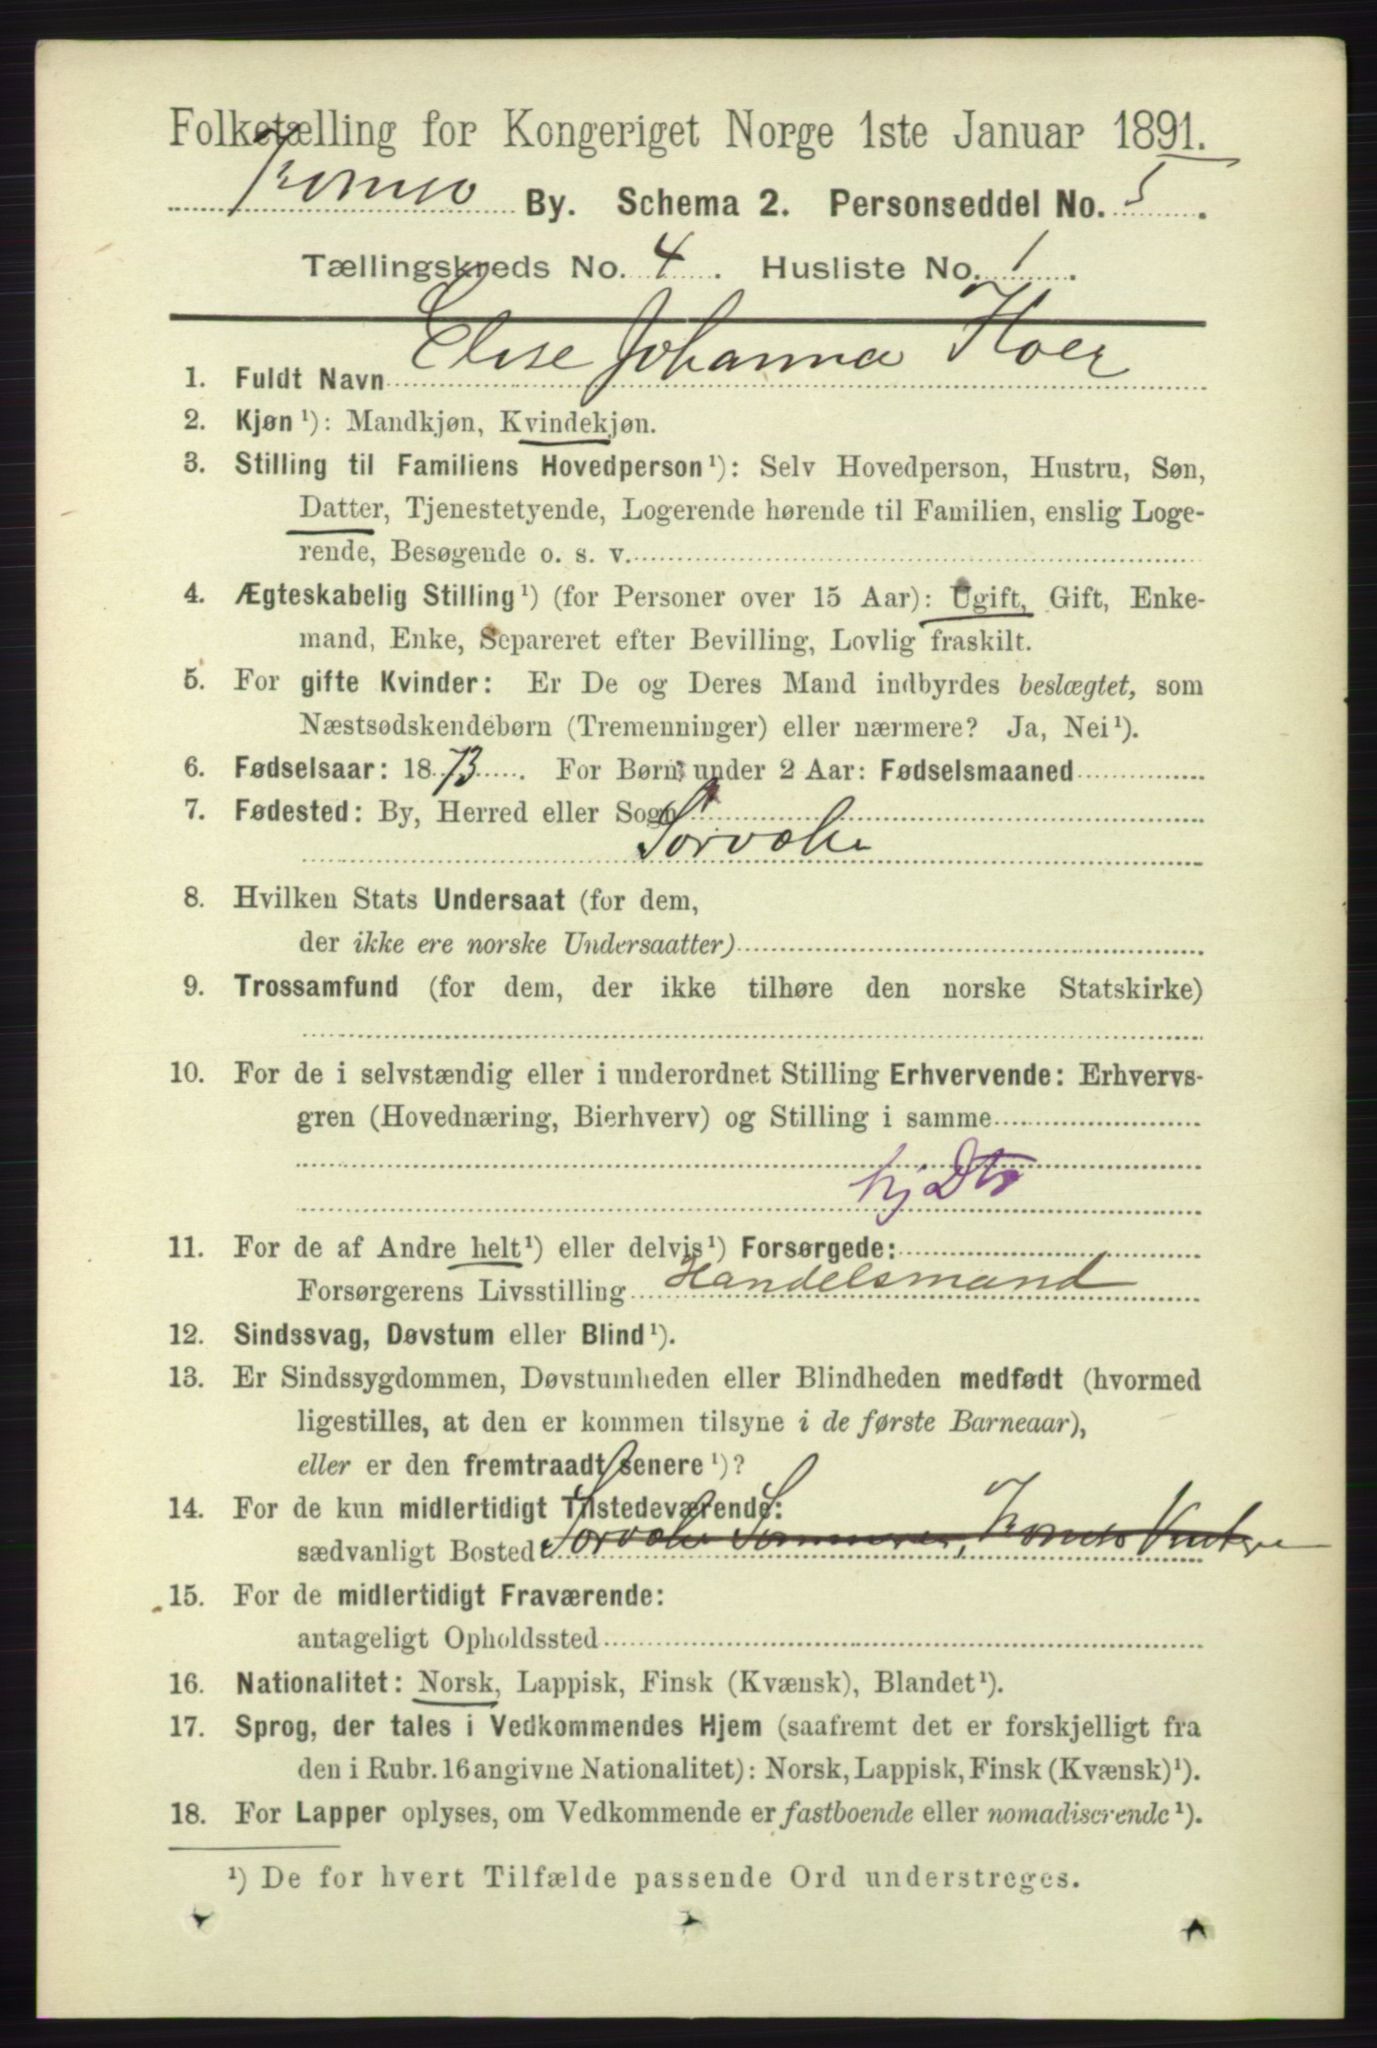 Folketælling for Kongeriget Norge 1ste Januar 1891.
Tromsø By. Schema 2. Personseddel No. 5.
Tællingskreds No. 4. Husliste No. 1.
1. Fuldt Navn Elise Johanna Hoer
2. Kjøn ¹): Mandkjøn, Kvindekjøn.
3. Stilling til Familiens Hovedperson ¹): Selv Hovedperson, Hustru, Søn,
Datter, Tjenestetyende, Logerende hørende til Familien, enslig Loge-
rende, Besøgende o. s. v.
4. Ægteskabelig Stilling ¹) (for Personer over 15 Aar): Ugift, Gift, Enke-
mand, Enke, Separeret efter Bevilling, Lovlig fraskilt.
5. For gifte Kvinder: Er De og Deres Mand indbyrdes beslægtet, som
Næstsødskendebørn (Tremenninger) eller nærmere? Ja, Nei ¹).
6. Fødselsaar: 1873. For Børn under 2 Aar: Fødselsmaaned
7. Fødested: By, Herred eller Sogn
Sørvær
8. Hvilken Stats Undersaat (for dem,
der ikke ere norske Undersaatter)
9. Trossamfund (for dem, der ikke tilhøre den norske Statskirke)
10. For de i selvstændig eller i underordnet Stilling Erhvervende: Erhvervs-
gren (Hovednæring, Bierhverv) og Stilling i samme
hj Dtr
11. For de af Andre helt ¹) eller delvis ¹) Forsørgede:
Forsørgerens Livsstilling Handelsmand
12. Sindssvag, Døvstum eller Blind ¹).
13. Er Sindssygdommen, Døvstumheden eller Blindheden medfødt (hvormed
ligestilles, at den er kommen tilsyne i de første Barneaar),
eller er den fremtraadt senere ¹)?
14. For de kun midlertidigt Tilstedeværende:
sædvanligt Bosted Sørvær Sommeren, Tromsø Vinteren
15. For de midlertidigt Fraværende:
antageligt Opholdssted
16. Nationalitet: Norsk, Lappisk, Finsk (Kvænsk), Blandet ¹).
17. Sprog, der tales i Vedkommendes Hjem (saafremt det er forskjelligt fra
den i Rubr. 16 angivne Nationalitet): Norsk, Lappisk, Finsk (Kvænsk) ¹).
18. For Lapper oplyses, om Vedkommende er fastboende eller nomadiserende ¹).
¹) De for hvert Tilfælde passende Ord understreges.